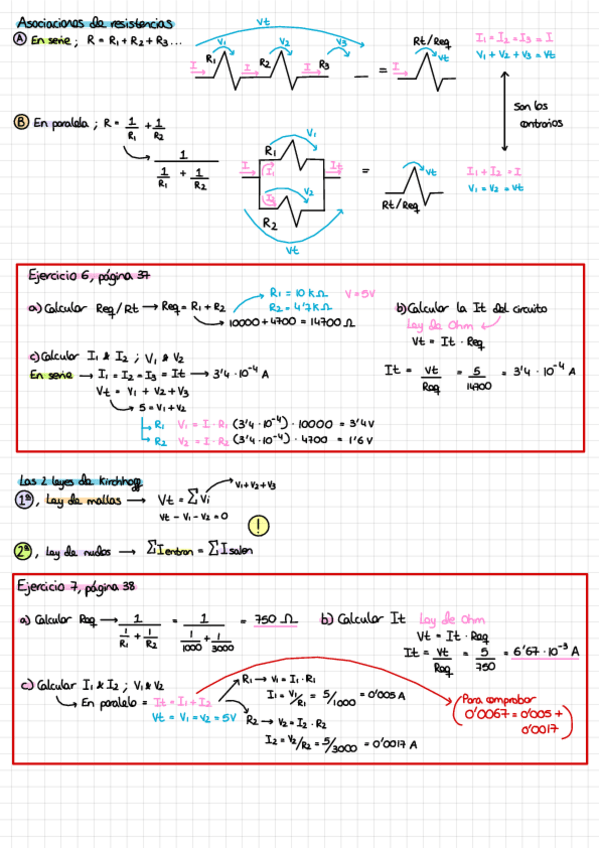 Asociaciones de resistencias
A En serie ; R = R1 + R2 + R3 ...
Vt
V1 V2 V3
I R1 I R2 I R3
=
Rt/Req
I Vt
I1 = I2 = I3 = I
V1 + V2 + V3 = Vt
Son los
contrarios
B En paralelo ; R = 1/R1 + 1/R2
1 / (1/R1 + 1/R2)
V1
R1
I I1 It
I2 V2
R2
Vt
=
Vt
Rt/Req
I1 + I2 = I
V1 = V2 = Vt
Ejercicio 6, página 37
a) Calcular Req/Rt → Req = R1 + R2
R1 = 10 kΩ V = 5V
R2 = 4'7 kΩ
10000 + 4700 = 14700 Ω
b) Calcular la It del circuito
Ley de Ohm
Vt = It · Req
It = Vt/Req = 5/14700 = 3'4 · 10⁻⁴ A
c) Calcular I1 & I2 ; V1 & V2
En serie → I1 = I2 = I3 = It → 3'4 · 10⁻⁴ A
Vt = V1 + V2 + V3
5 = V1 + V2
R1 V1 = I · R1 (3'4 · 10⁻⁴) · 10000 = 3'4 V
R2 V2 = I · R2 (3'4 · 10⁻⁴) · 4700 = 1'6 V
Las 2 leyes de Kirchhoff
1ª, Ley de mallas → Vt = ΣVi
V1 + V2 + V3
Vt - V1 - V2 = 0
!
2ª, Ley de nudos → ΣIentran = ΣIsalen
Ejercicio 7, página 38
a) Calcular Req → 1 / (1/R1 + 1/R2) = 1 / (1/1000 + 1/3000) = 750 Ω
b) Calcular It Ley de Ohm
Vt = It · Req
It = Vt/Req = 5/750 = 6'67 · 10⁻³ A
c) Calcular I1 & I2 ; V1 & V2
En paralelo = It = I1 + I2
Vt = V1 = V2 = 5V
R1 → V1 = I1 · R1
I1 = V1/R1 = 5/1000 = 0'005 A
R2 → V2 = I2 · R2
I2 = V2/R2 = 5/3000 = 0'0017 A
(Para comprobar
0'0067 = 0'005 +
0'0017)